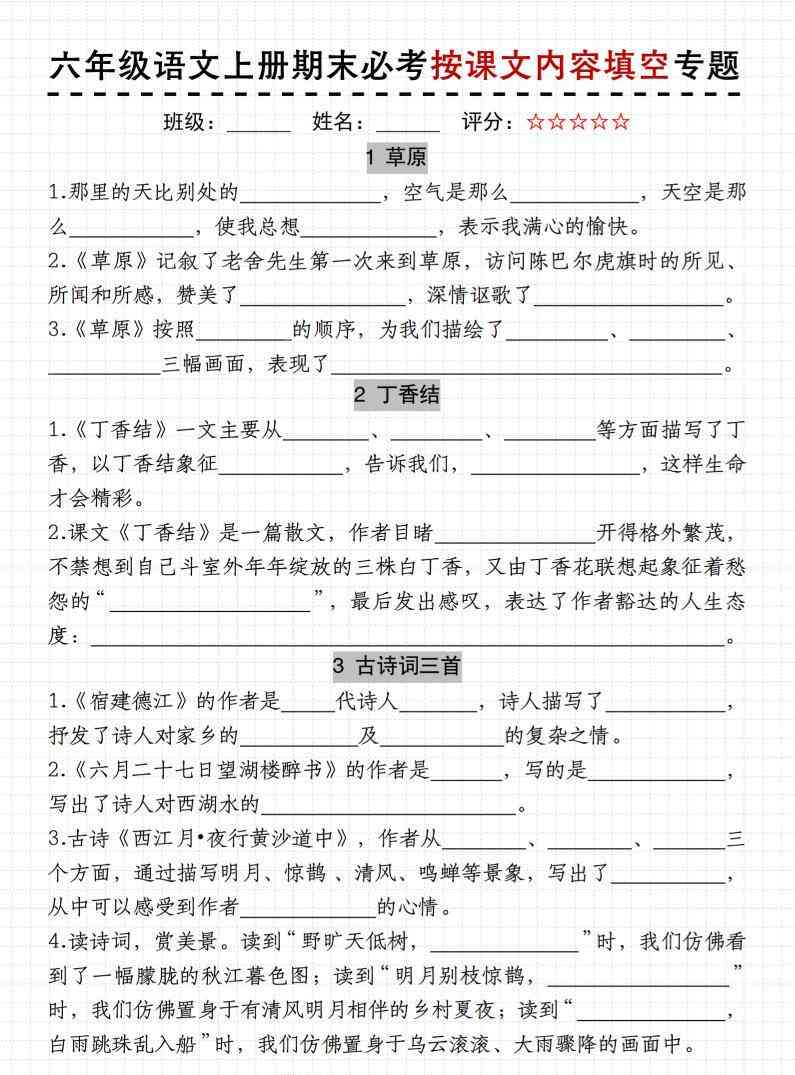 六年级语文上册期末必考按课文内容填空专题
班级：______ 姓名：______ 评分：☆☆☆☆☆
1 草原
1.那里的天比别处的____________，空气是那么____________，天空是那
么____________，使我总想____________，表示我满心的愉快。
2.《草原》记叙了老舍先生第一次来到草原，访问陈巴尔虎旗时的所见、
所闻和所感，赞美了______________，深情讴歌了________________。
3.《草原》按照________的顺序，为我们描绘了_________、________、
__________三幅画面，表现了__________________________________。
2 丁香结
1.《丁香结》一文主要从________、________、________等方面描写了丁
香，以丁香结象征___________，告诉我们，_______________，这样生命
才会精彩。
2.课文《丁香结》是一篇散文，作者目睹______________开得格外繁茂，
不禁想到自己斗室外年年绽放的三株白丁香，又由丁香花联想起象征着愁
怨的“__________________”，最后发出感叹，表达了作者豁达的人生态
度：________________________________________________________。
3 古诗词三首
1.《宿建德江》的作者是_____代诗人_______，诗人描写了__________，
抒发了诗人对家乡的__________及___________的复杂之情。
2.《六月二十七日望湖楼醉书》的作者是______，写的是____________，
写出了诗人对西湖水的______________________。
3.古诗《西江月•夜行黄沙道中》，作者从_______、_______、_______三
个方面，通过描写明月、惊鹊 、清风、鸣蝉等景象，写出了__________，
从中可以感受到作者____________的心情。
4.读诗词，赏美景。读到“野旷天低树，_____________”时，我们仿佛看
到了一幅朦胧的秋江暮色图；读到“明月别枝惊鹊，________________”
时，我们仿佛置身于有清风明月相伴的乡村夏夜；读到“_____________，
白雨跳珠乱入船”时，我们仿佛置身于乌云滚滚、大雨骤降的画面中。